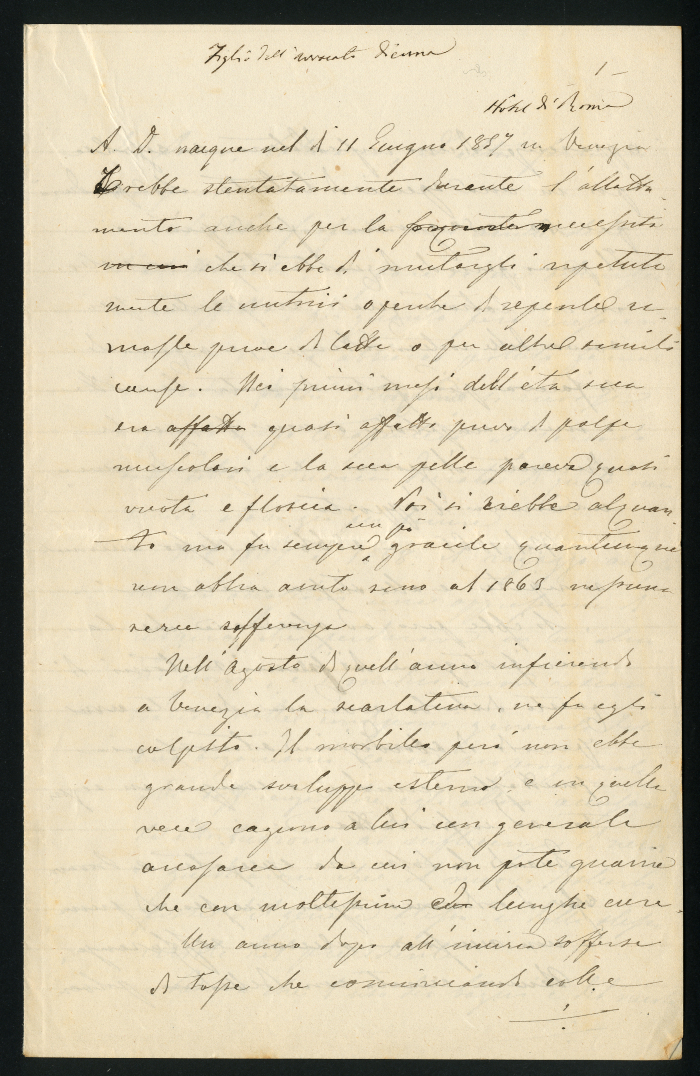 Figlio dell'avvocato Diena
1
Hotel di Roma
A. D. nacque nel dì 11 Giugno 1857 in Venezia
Crebbe stentatamente durante l'allatta
mento anche per la necessità
che si ebbe di mutargli ripetuta
mente le nutrici o perché di repente ri-
masse prive di latte o per altre simili
cause. Nei primi mesi dell'età sua
era affatto quasi affatto privo di polpe
muscolari e la sua pelle pareva quasi
vuota e floscia. Poi si crebbe alquan
to ma fu sempre un pò gracile quantunque
non abbia avuto sino al 1863 nessuna
seria sofferenza
Nell'Agosto di quell'anno infierendo
a Venezia la scarlatina, ne fu egli
colpito. Il morbillo però non ebbe
grande sviluppo esterno, e in quella
vece cagionò a lui un generale
anasarca da cui non potè guarire
che con moltissime e lunghe cure.
Un anno dopo all'incirca sofferse
di tosse che cominciando colle